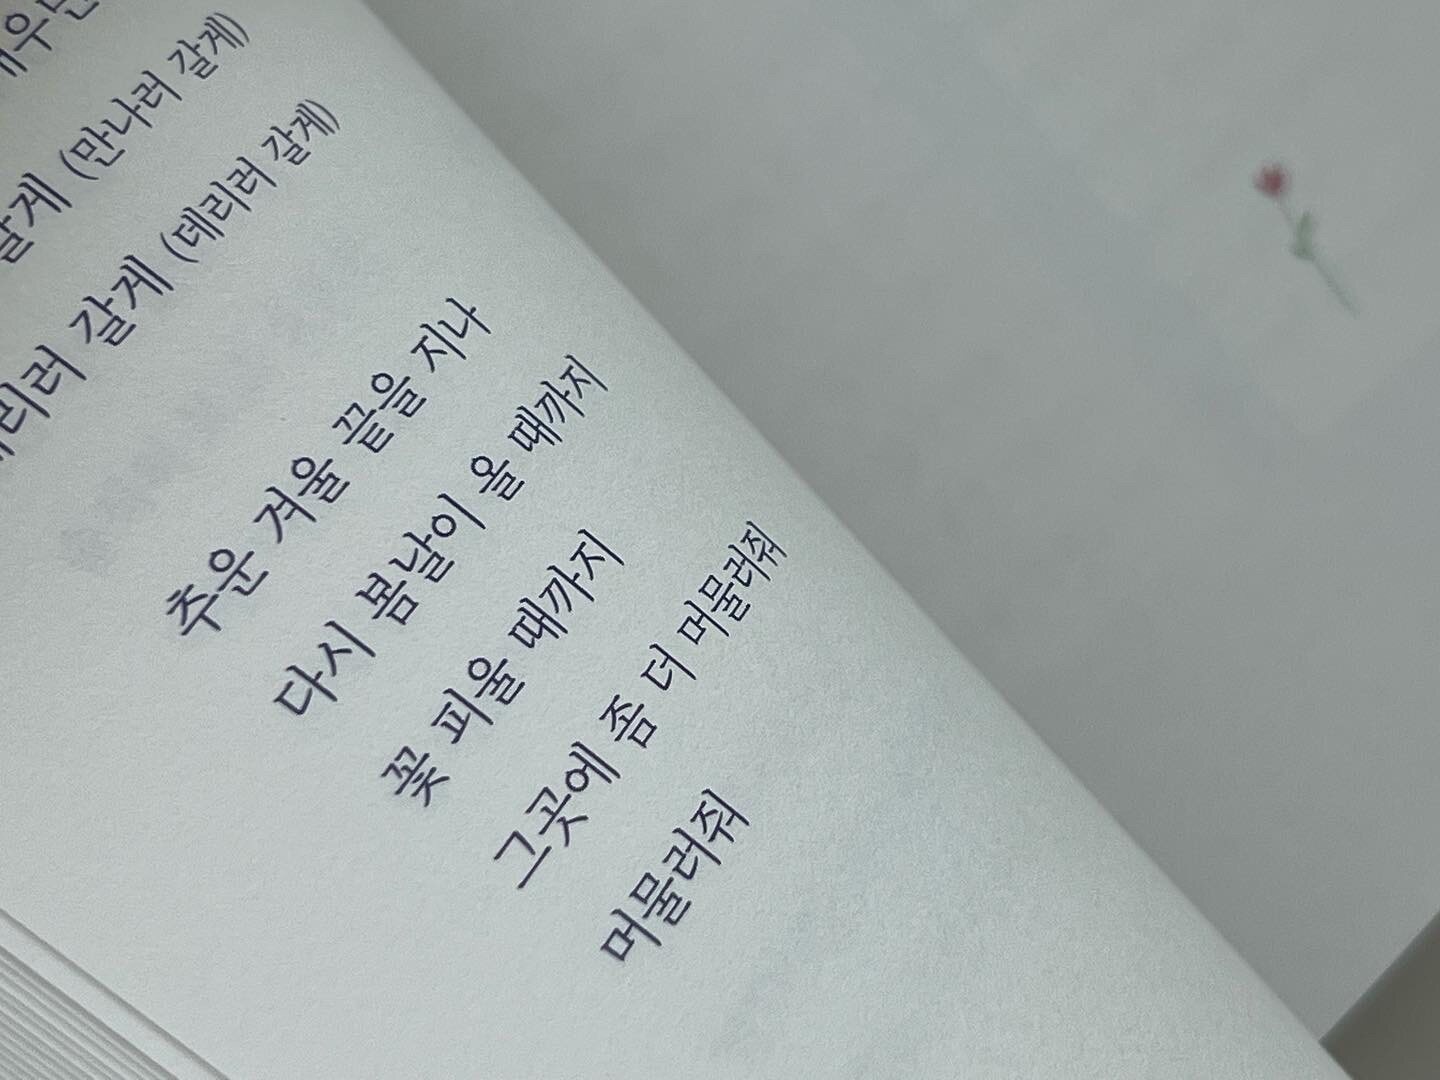 갈게 (만나러 갈게)
데리러 갈게 (데리러 갈게)
추운 겨울 끝을 지나
다시 봄날이 올 때까지
꽃 피울 때까지
그곳에 좀 더 머물러줘
머물러줘